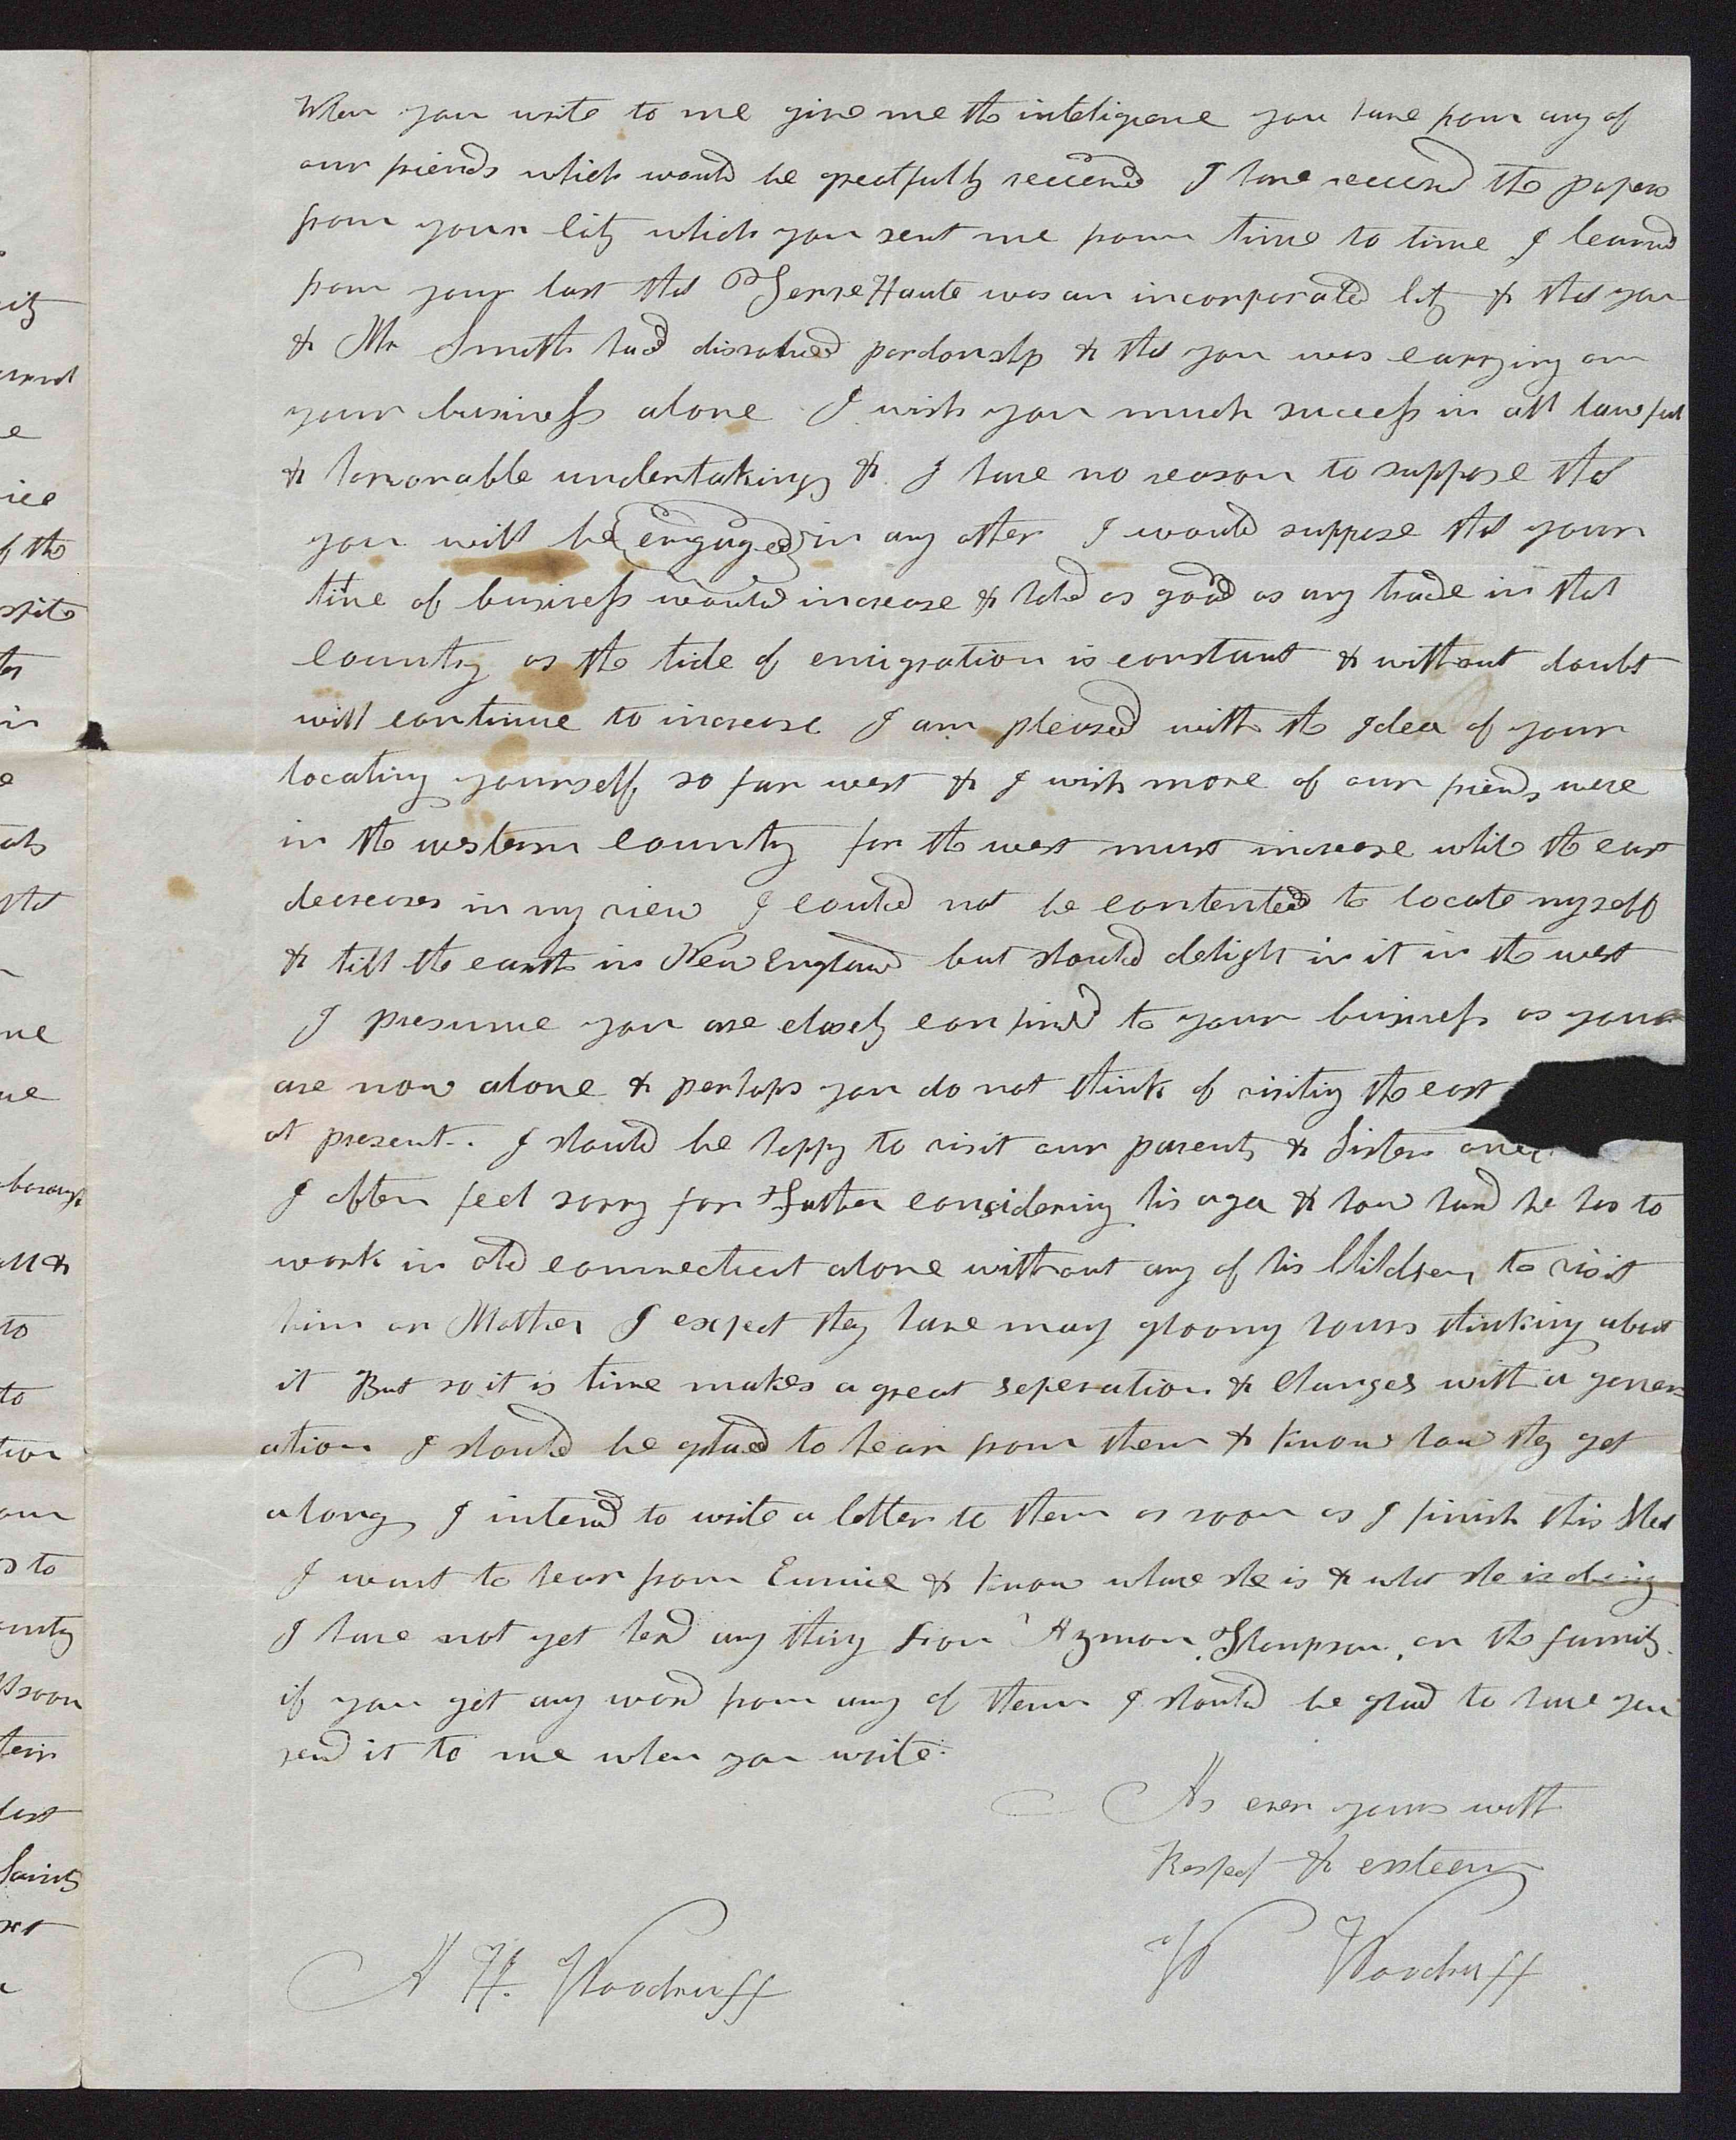 When you write to me give me the inteligence you have from any of
our friends which would be greatfully received I have received the papers
from your City which you sent me from time to time I learned
from your last that Terre Haute was an incorporated City & that you
& Mr Smith had dissolved pardonship & that you was carrying on
your business alone I wish you much success in all lawful
& honorable undertakings & I have no reason to suppose that
you will be engaged in any other I would suppose that your
line of business would increase & hold as good as any trade in that
Country as the tide of emigration is constant & without doubt
will continue to increase I am pleased with the Idea of your
locating yourself so far west & I wish more of our friends were
in the western Country for the west must increase while the east
decreases in my view I could not be contented to locate myself
& till the earth in New England but should delight in it in the west
I presume you are closely confined to your business as you
are now alone & perhaps you do not think of visiting the east
at present. I should be happy to visit our parents & Sister
I often feel sorry for Father considering his age & how hard he has to
work in old connecticut alone without any of his Children to visit
him or Mother I expect they have many gloomy hours thinking about
it But so it is time makes a great seperation & Changes with a gener
ation I should be glad to hear from them & know how they get
along I intend to write a letter to them as soon as I finish this
I want to hear from Eunice & know whare she is & what she is doing
I have not yet herd any thing from Azmon, Thompson, or the family.
if you get any word from any of them I should be glad to have you
send it to me when you write.
As ever yours with
Respect & esteem
A H. Woodruff
W Woodruff
ity
e
of the
in
e
to
to
tion
s to
soon
last
Saints